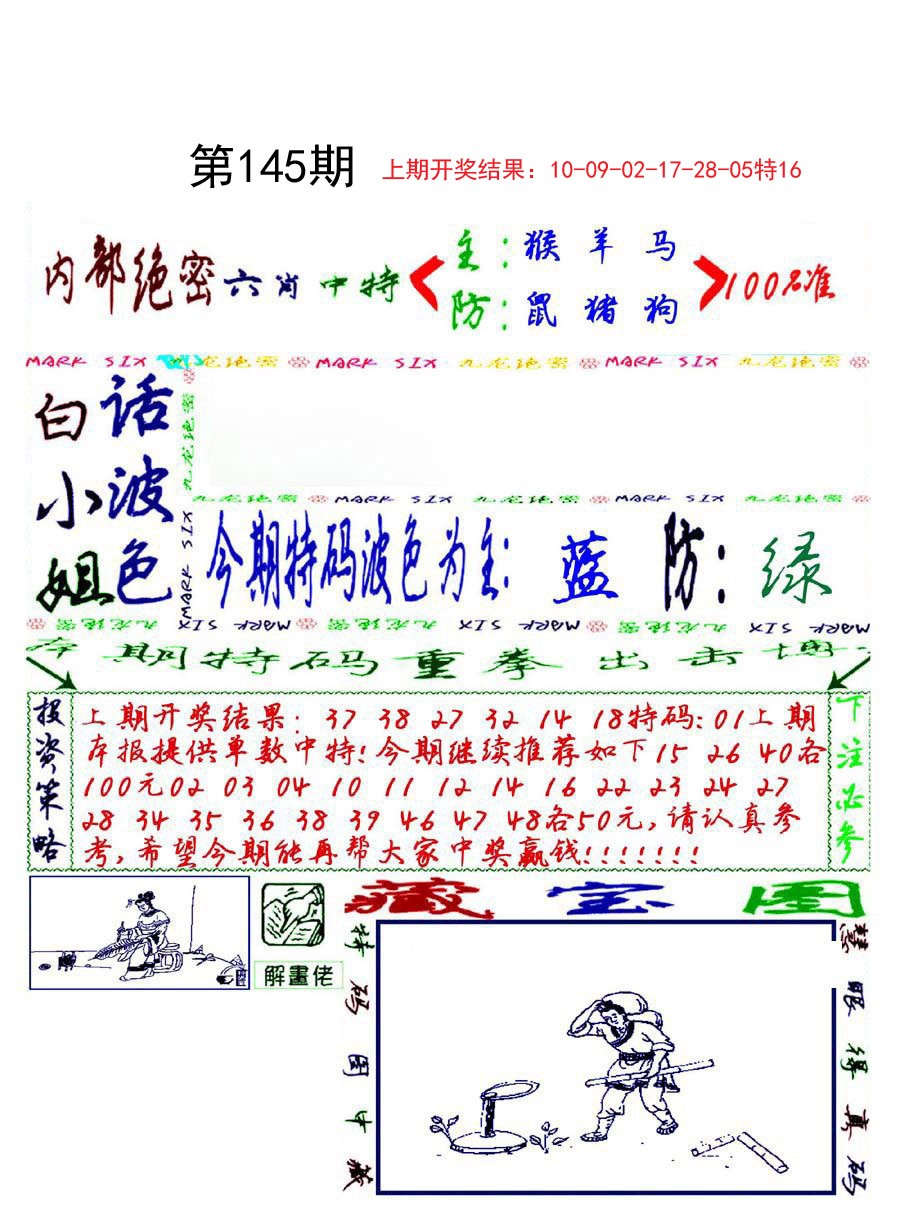 第145期 上期开奖结果：10-09-02-17-28-05特16
内部绝密六肖中特 主：猴羊马 100%准
防：鼠猪狗
MARK SIX 九龙绝密 MARK SIX 九龙绝密 MARK SIX 九龙绝密
白话
小波
姐色
九龙绝密 MARK SIX
九龙绝密 MARK SIX 九龙绝密 MARK SIX 九龙绝密
今期特码波色为主：蓝 防：绿
九龙绝密 MARK SIX 九龙绝密 MARK SIX 九龙绝密 MARK SIX
本期特码重拳出击博
投资策略
上期开奖结果：37 38 27 32 14 18特码:01上期
本报提供单数中特!今期继续推荐如下15 26 40各
100元02 03 04 10 11 12 14 16 22 23 24 27
28 34 35 36 38 39 46 47 48各50元,请认真参
考,希望今期能再帮大家中奖赢钱!!!!!!!
下注必参
解畫佬
藏宝图
特码图中藏
慧眼得真码